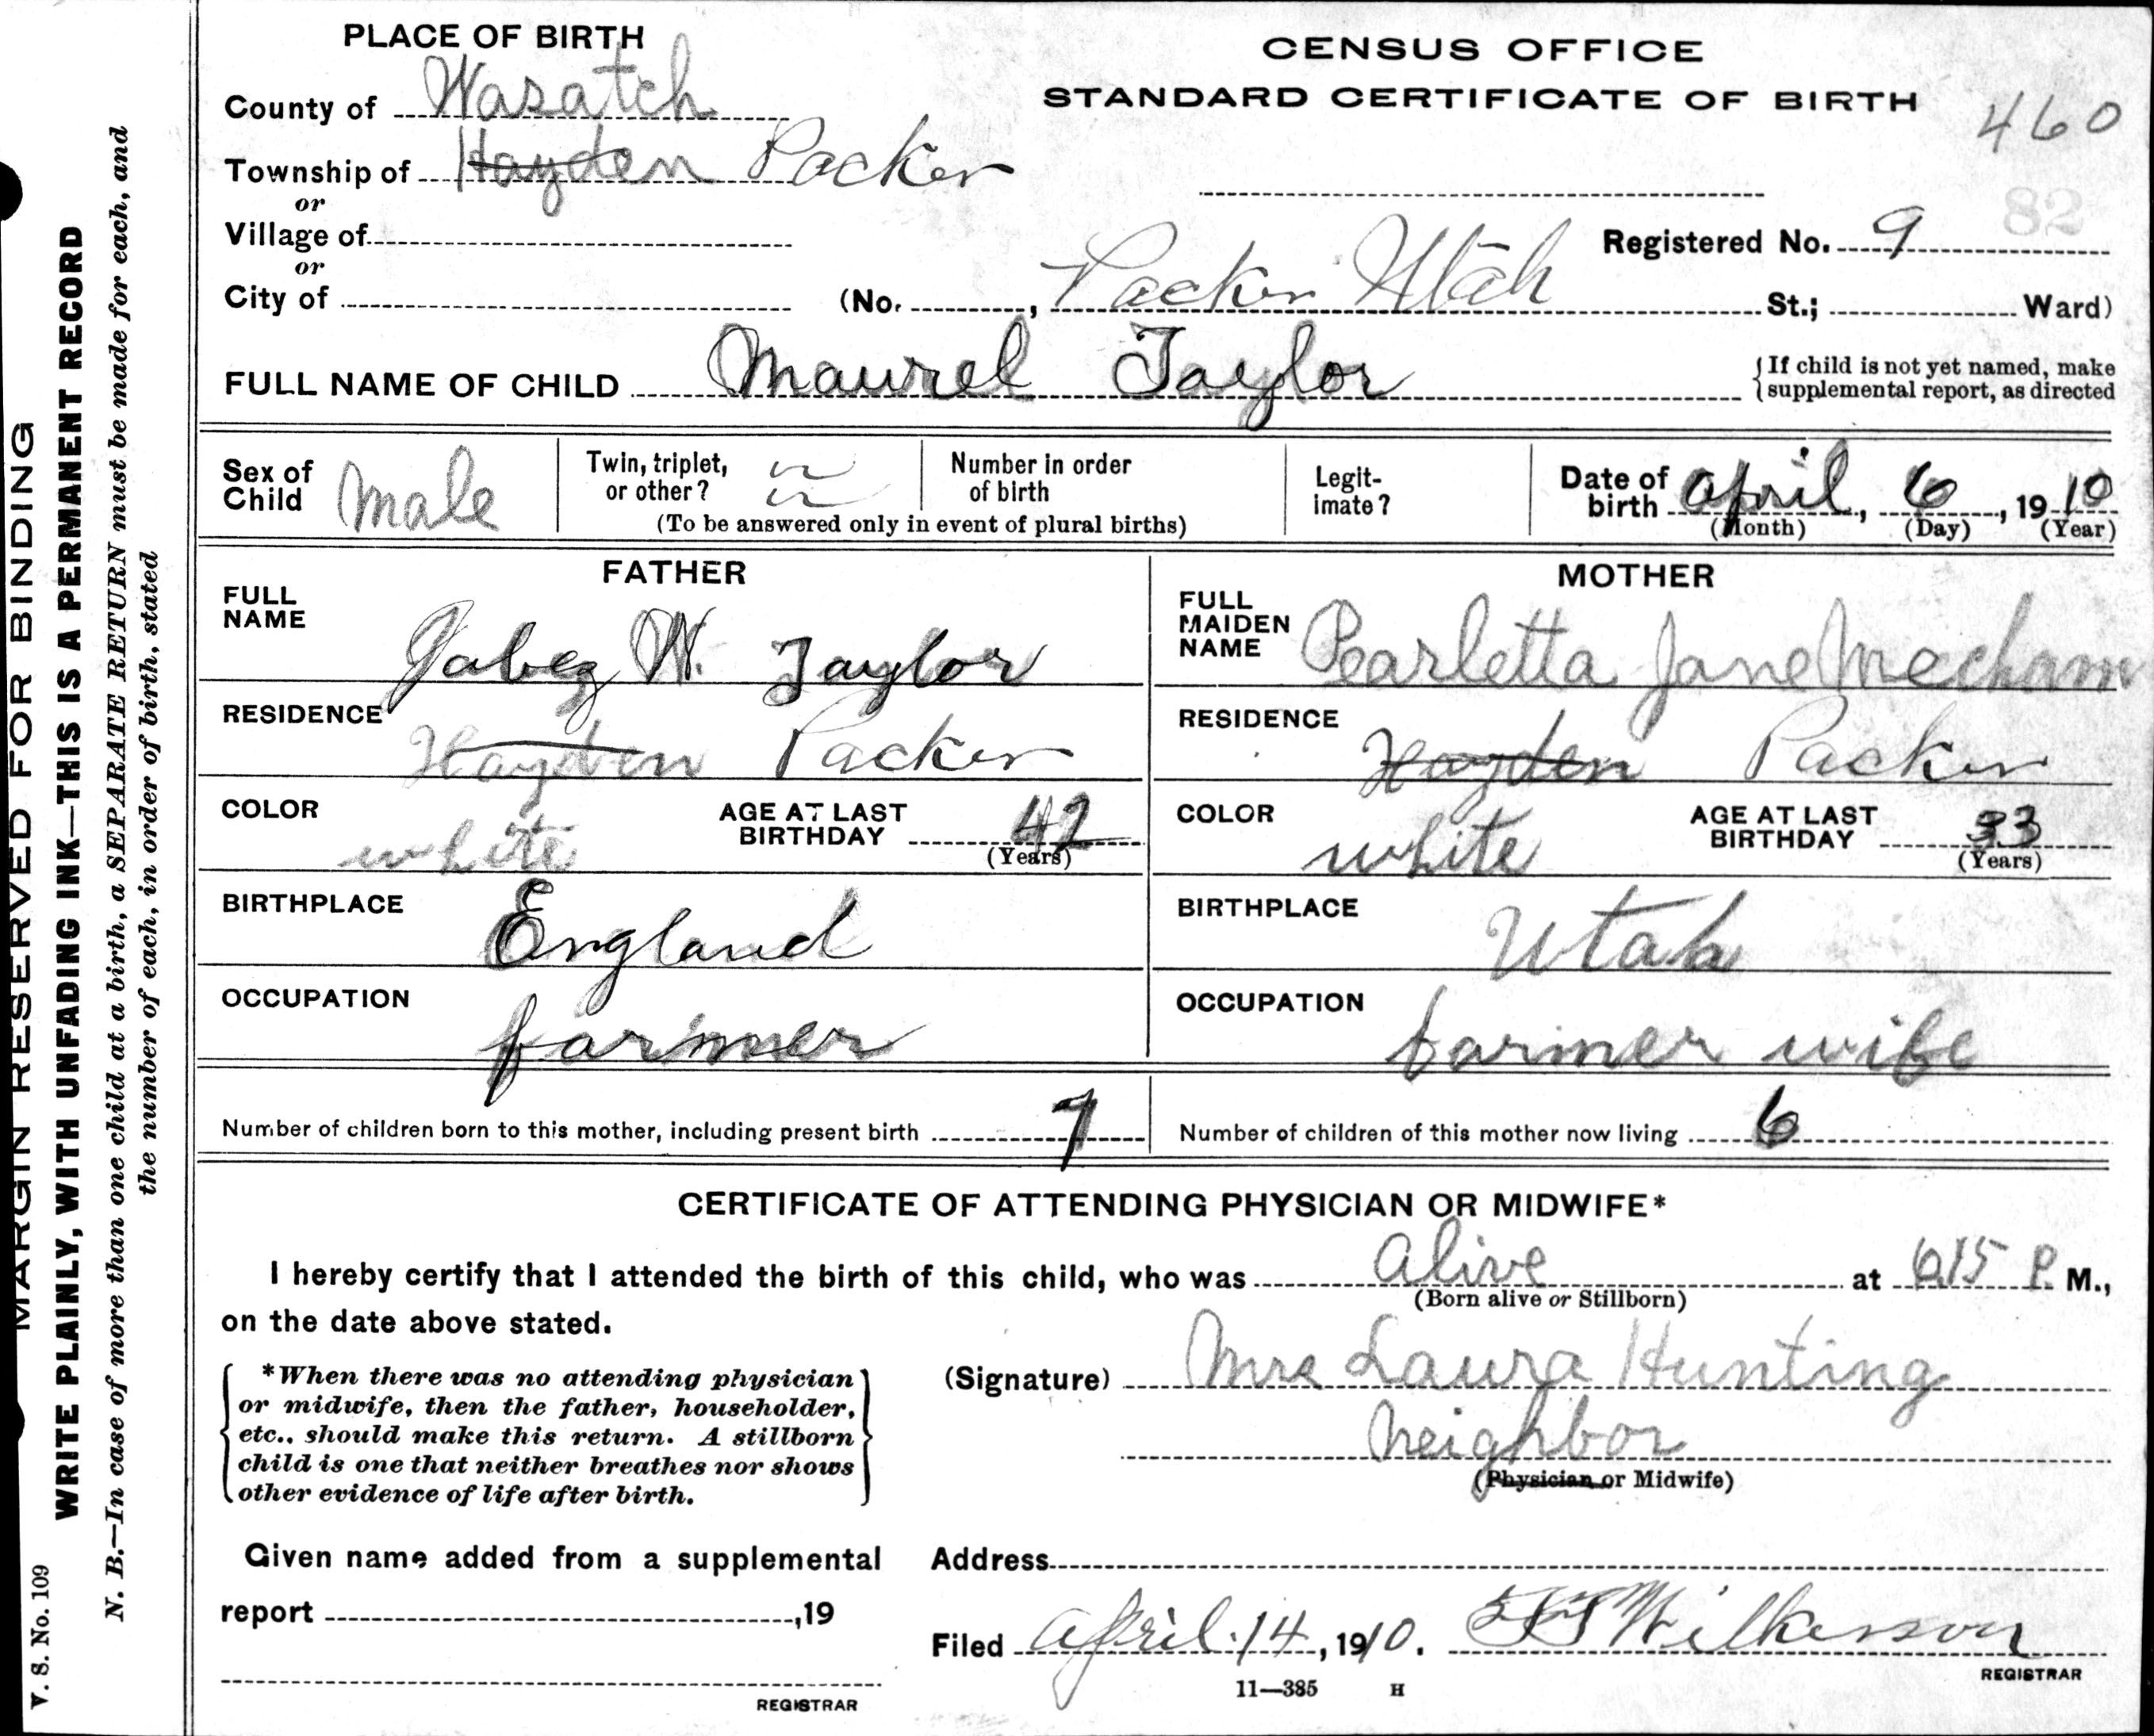 PLACE OF BIRTH
CENSUS OFFICE
STANDARD CERTIFICATE OF BIRTH
460
County of Wasatch
Township of Hayden Packer
or
Village of
82
Registered No. 9
or
City of (No. , Packer Utah St.; Ward)
FULL NAME OF CHILD Maurel Taylor {If child is not yet named, make
supplemental report, as directed
Sex of Child male
Twin, triplet, or other?
Number in order of birth
(To be answered only in event of plural births)
Legit-
imate?
Date of birth April, 6, 1910
(Month) (Day) (Year)
FATHER
FULL NAME
Jabez W. Taylor
RESIDENCE
Hayden Packer
COLOR
white
AGE AT LAST BIRTHDAY 42
(Years)
BIRTHPLACE
England
OCCUPATION
farmer
MOTHER
FULL MAIDEN NAME
Pearletta Jane Mecham
RESIDENCE
Hayden Packer
COLOR
white
AGE AT LAST BIRTHDAY 33
(Years)
BIRTHPLACE
Utah
OCCUPATION
farmer wife
Number of children born to this mother, including present birth 7
Number of children of this mother now living 6
CERTIFICATE OF ATTENDING PHYSICIAN OR MIDWIFE*
I hereby certify that I attended the birth of this child, who was alive at 615 P. M.,
(Born alive or Stillborn)
on the date above stated.
*When there was no attending physician
or midwife, then the father, householder,
etc., should make this return. A stillborn
child is one that neither breathes nor shows
other evidence of life after birth.
(Signature) Mrs Laura Hunting
Neighbor
(Physician or Midwife)
Given name added from a supplemental
report ,19
REGISTRAR
Address
Filed April 14, 1910. Wilkerson
REGISTRAR
11—385 H
MARGIN RESERVED FOR BINDING
WRITE PLAINLY, WITH UNFADING INK—THIS IS A PERMANENT RECORD
N. B.—In case of more than one child at a birth, a SEPARATE RETURN must be made for each, and
the number of each, in order of birth, stated
V. S. No. 109